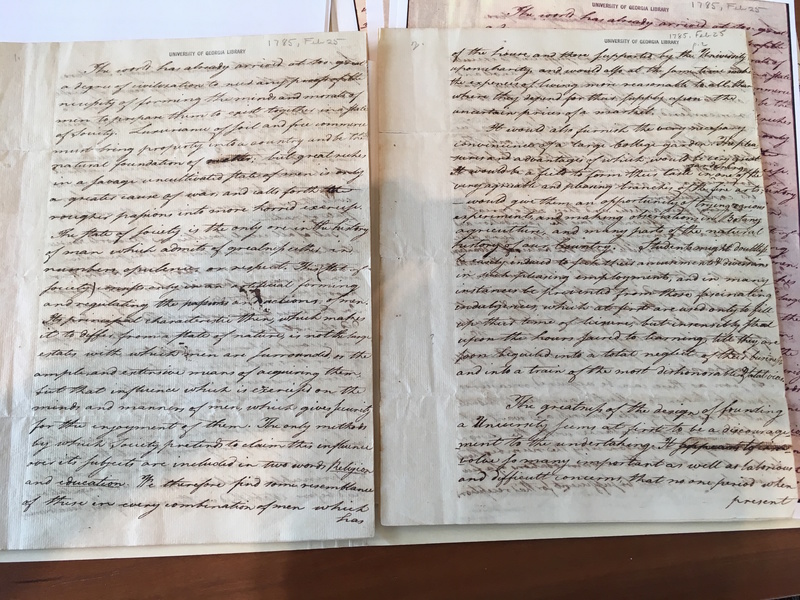 UNIVERSITY OF GEORGIA LIBRARY
1785, Feb 25
The world has already arrived at too great
a degree of civilization to need any proof of the
necessity of forming the minds and morals of
men to prepare them to exist together in a state
of Society. Luxuriance of soil and free commerce
must bring property into a country and be the
natural foundation of but great riches
in a savage uncultivated state of men is only
a greater cause of war and calls forth the
rougher passions into more horrid exercise.
The State of Society is the only one in the history
of man which admits of greatness either in
numbers, opulence or respect. This (that is of
Society) exists only in an artificial forming
and regulating the passions and actions of men.
Its characteristic which makes
it to differ from a state of nature is not the large
estates with which men are surrounded or the
ample and extensive means of acquiring them
but that influence which is exercised on the
minds and manners of men which gives security
for the enjoyment of them. The only methods
by which Society pretends to claim this influence
over its subjects are included in two words Religion
and education. We therefore find some resemblance
of these in every combination of men which
has
UNIVERSITY OF GEORGIA LIBRARY
1785, Feb 25
p. 2
of the house and those supported by the University
and would also at the same time make
the expences of living more reasonable to all than
where they depend for their supply upon the
uncertain prices of a market.
It would also furnish the very necessary
convenience of a large College garden. The plea
sures and advantages of which would be very great
It would be a field to form their taste in one of the
very agreeable and pleasing branches of the fine arts
would give them an opportunity of trying
experiments and making observations in Botany
agriculture and many parts of the natural
history of our Country. Students might doubtless
be easily induced to take their amusements & diversions
in such pleasing employments, and in many
instances be prevented from those fascinating
indulgences which at first are used only to fill
up their time of leisure, but insensibly steal
upon the hours sacred to learning, till they are
soon beguiled into a total neglect of their business
and into a train of the most dishonorable & fatal vices
The greatness of the design of founding
a University seems at first to be a discourage
ment to the undertaking. It
volve so many important as well as laborious
and difficult concerns, that no one period when
present
UNIVERSITY OF GEORGIA LIBRARY
1785, Feb 25
The world has already arrived at too great